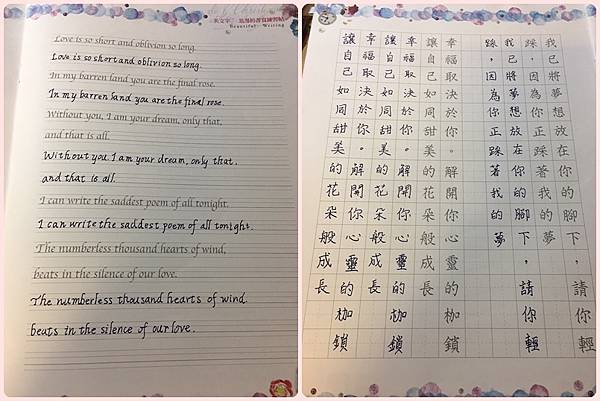 Beautiful Writing
Love is so short and oblivion so long.
Love is so short and oblivion so long.
In my barren land you are the final rose.
In my barren land you are the final rose.
Without you, I am your dream, only that,
and that is all.
Without you, I am your dream, only that,
and that is all.
I can write the saddest poem of all tonight.
I can write the saddest poem of all tonight.
The numberless thousand hearts of wind,
beats in the silence of our love.
The numberless thousand hearts of wind
beats in the silence of our love.
我已將夢想放在你的腳下，請你輕
踩，因為你正踩著我的夢
我已將夢想放在你的腳下，請你輕
踩，因為你正踩著我的夢
幸福取決於你。解開你心靈的枷鎖
讓自己如同甜美的花朵般成長
幸福取決於你。解開你心靈的枷鎖
讓自己如同甜美的花朵般成長
幸福取決於你。解開你心靈的枷鎖
讓自己如同甜美的花朵般成長